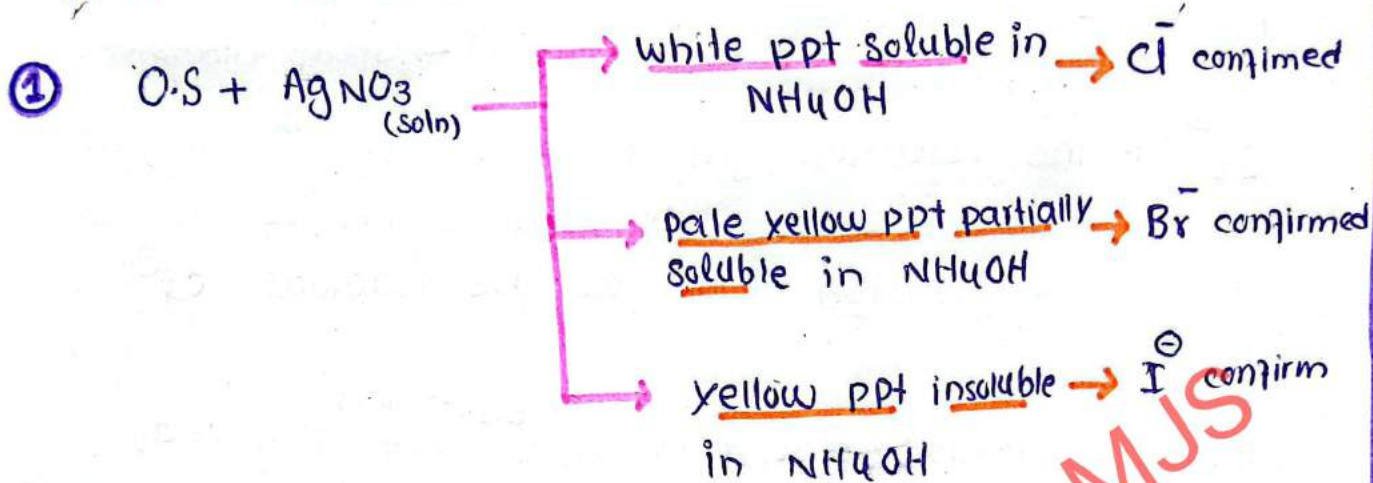 ① O.S + AgNO3 (soln)
white ppt soluble in NH4OH → Cl⁻ confimed
pale yellow ppt partially soluble in NH4OH → Br⁻ confirmed
yellow ppt insoluble in NH4OH → I⊖ confirm
MJS